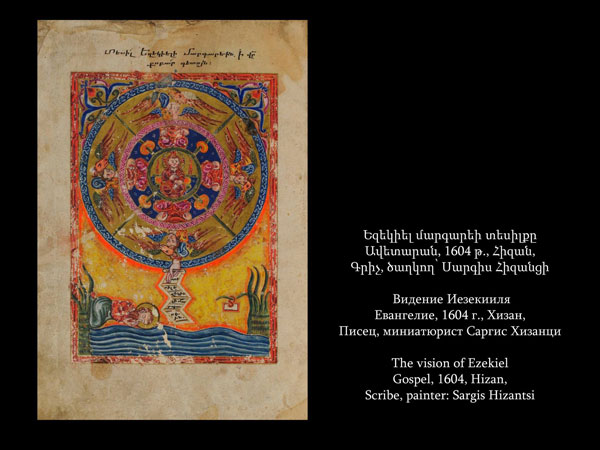 Եզեկիել մարգարեի տեսիլքը
Ավետարան, 1604 թ., Հիզան,
Գրիչ, ծաղկող՝ Սարգիս Հիզանցի
Видение Иезекииля
Евангелие, 1604 г., Хизан,
Писец, миниатюрист Саргис Хизанци
The vision of Ezekiel
Gospel, 1604, Hizan,
Scribe, painter: Sargis Hizantsi